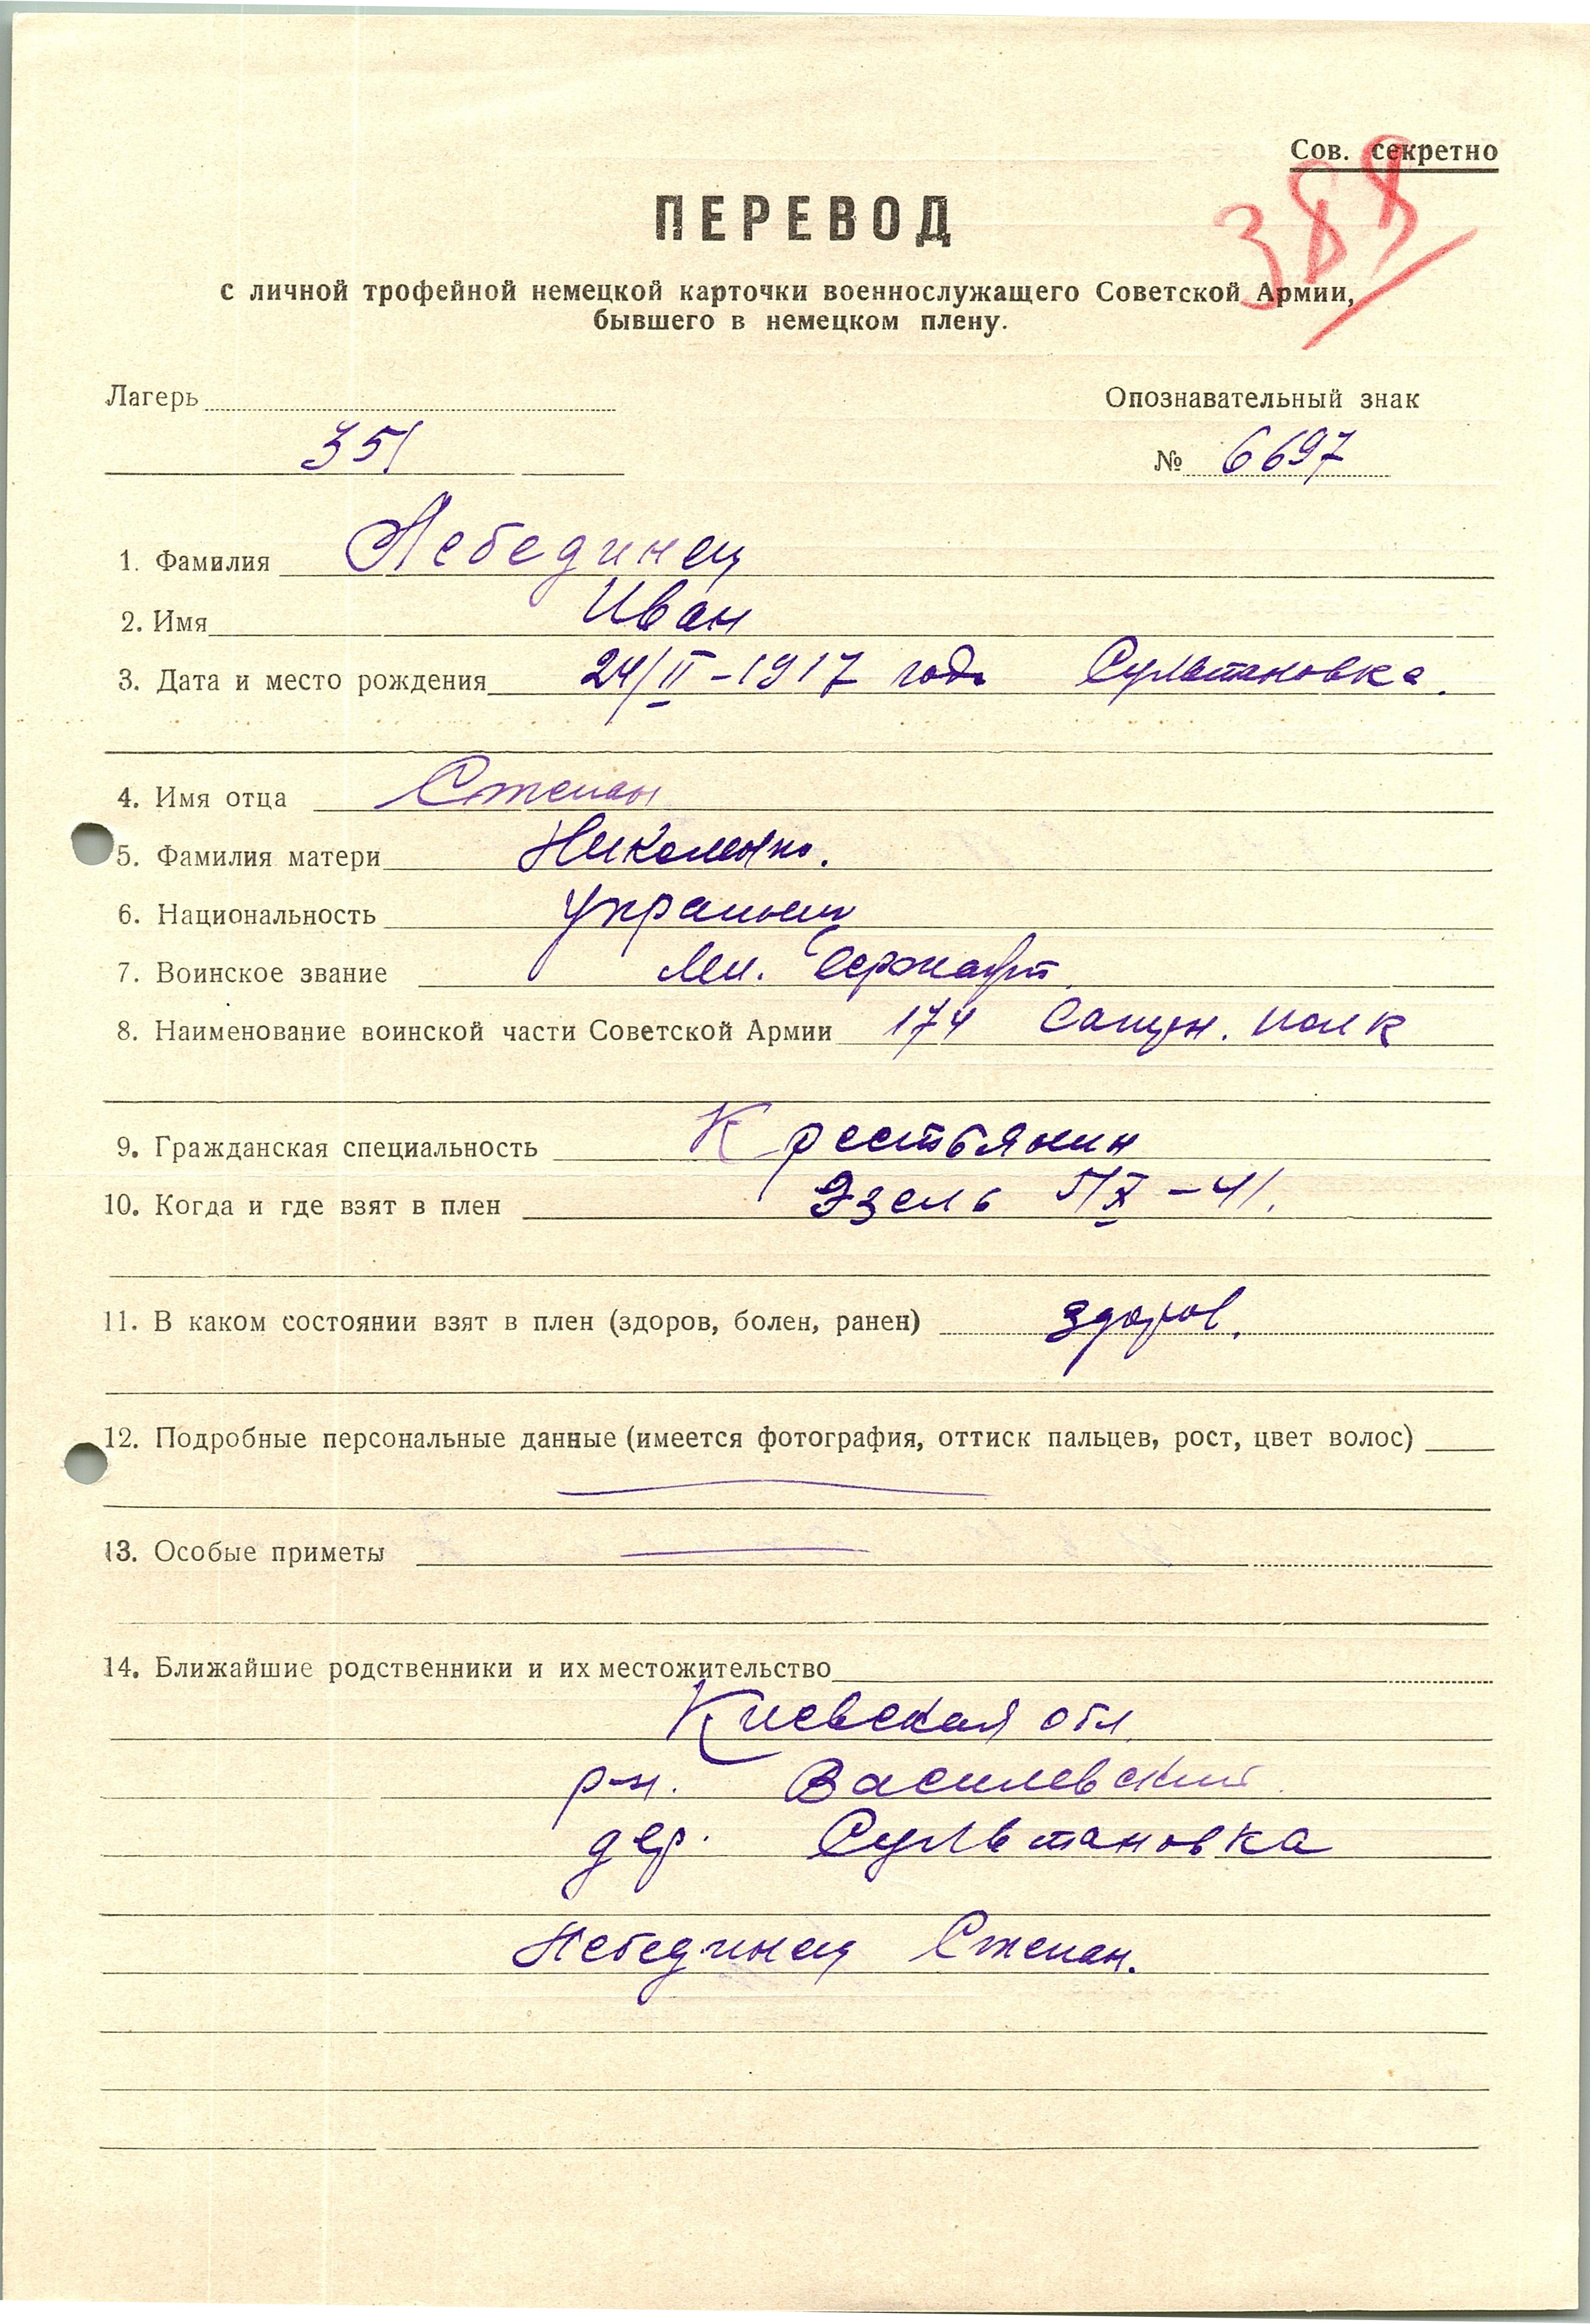 Сов. секретно
388
ПЕРЕВОД
с личной трофейной немецкой карточки военнослужащего Советской Армии,
бывшего в немецком плену.
Лагерь Опознавательный знак
351 № 6697
1. Фамилия Лебединец
2. Имя Иван
3. Дата и место рождения 24/II-1917 года Султановка.
4. Имя отца Степан
5. Фамилия матери
6. Национальность Украинец
7. Воинское звание Мл. Сержант
8. Наименование воинской части Советской Армии 174 полк
9. Гражданская специальность Крестьянин
10. Когда и где взят в плен Эзель 5/X-41.
11. В каком состоянии взят в плен (здоров, болен, ранен) здоров.
12. Подробные персональные данные (имеется фотография, оттиск пальцев, рост, цвет волос)
13. Особые приметы
14. Ближайшие родственники и их местожительство
Киевская обл.
р-н. Василевский.
дер. Султановка
Лебединец Степан.